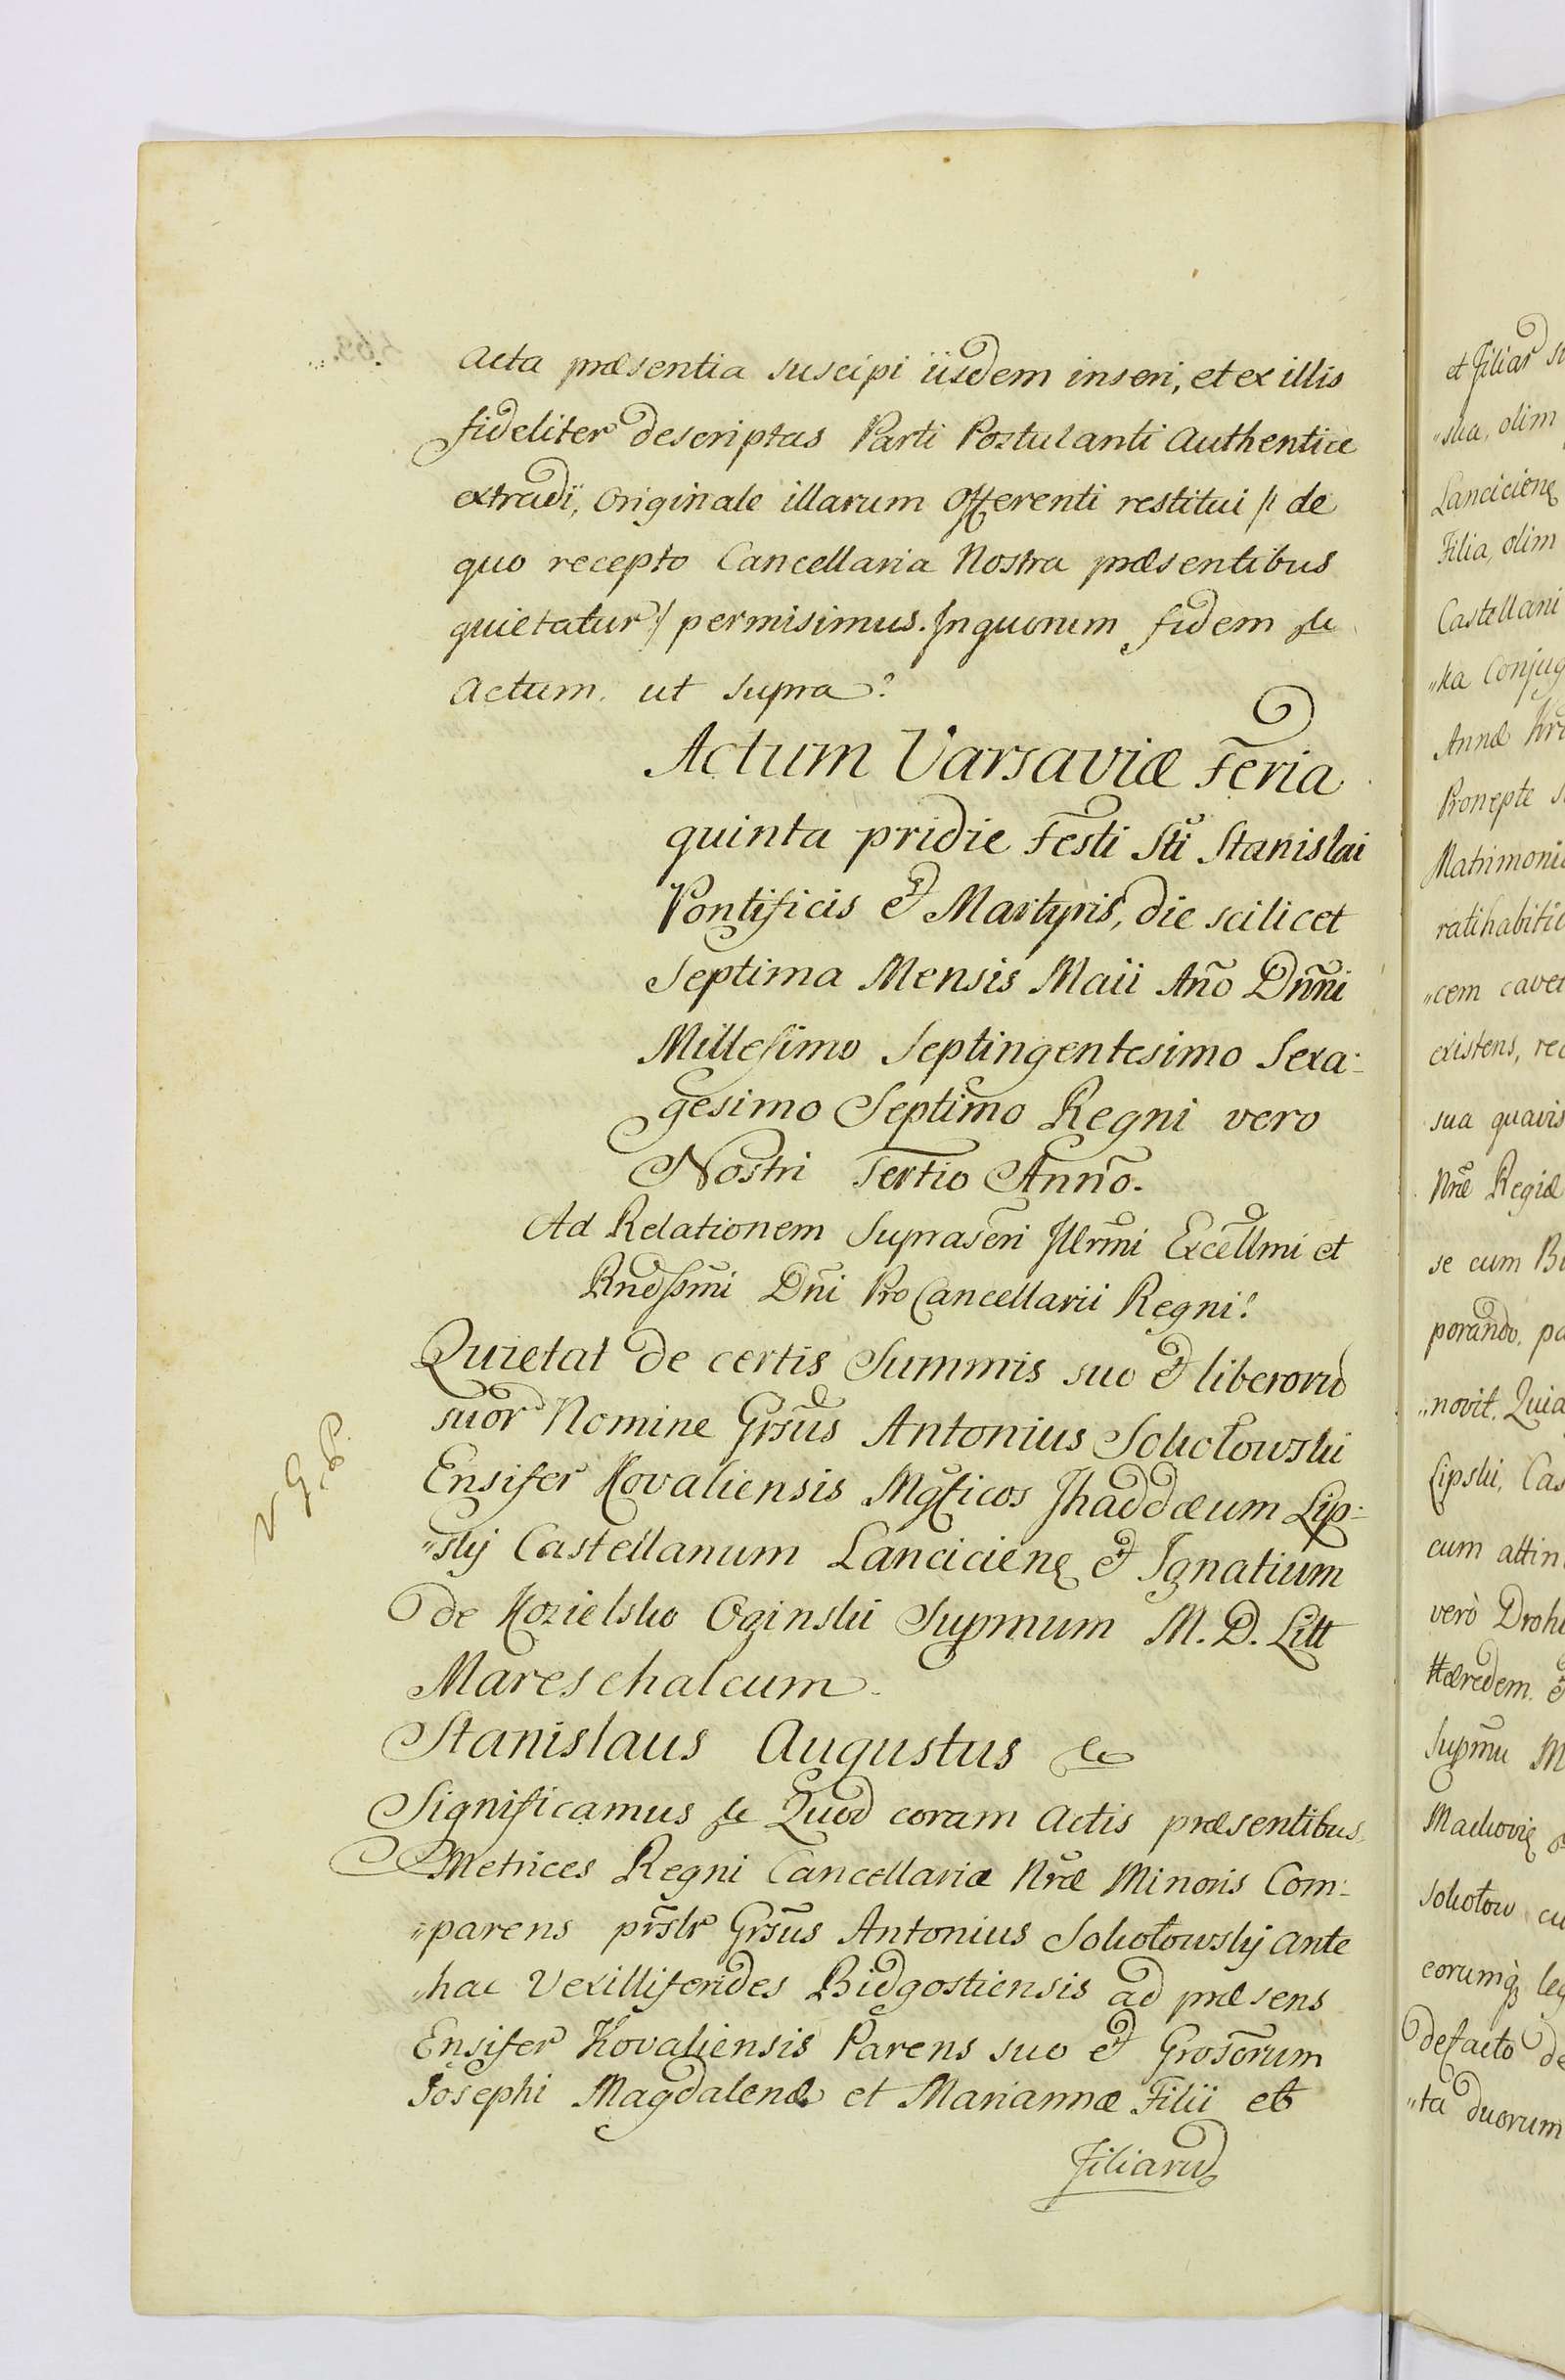 acta præsentia suscipi iisdem inseri, et ex illis
fideliter descriptas Parti Postulanti authentice
extradi, originale illarum offerenti restitui /: de
quo recepto Cancellaria Nostra præsentibus
quietatur :/ permisimus. In quorum fidem &c
actum ut supra.
Actum Varsaviæ Feria
quinta pridie Festi Sti Stanislai
Pontificis et Martyris, die scilicet
Septima Mensis Maii Año Dñni
Millesimo Septingentesimo Sexa-
gesimo Septimo Regni vero
Nostri Tertio Anno.
Ad Relationem Suprascri Illrmi Excellmi et
Rndssmi Dñi Pro Cancellarii Regni.
Quietat de certis Summis suo et liberorū
suor Nomine Grsus Antonius Sokołowski
Ensifer Kovaliensis Mgficos Thaddæum Lip-
"skij Castellanum Lancicień et Ignatium
de Kozielsko Oginski Supmum M. D. Litt
Mareschalcum.
v G. P.
Stanislaus Augustus &c
Significamus &c Quod coram Actis præsentibus
Metrices Regni Cancellariæ Nræ Minoris Com-
"parens prslr Grsus Antonius Sokołowskij ante
"hac Vexilliferides Bidgostiensis ad præsens
Ensifer Kovaliensis Parens suo et Grosorum
Josephi Magdalenæ et Mariannæ Filii et
Filiarū
et Filiar
"ska, olim
Lancicień
Filia, olim
Castellani
"ka Conjug
Annæ
Pronepte
Matrimoni
ratihabitio
"cem cave
existens, re
sua quavis
Nræ Regiæ
se cum
porando, pa
"novit. Quia
Lipski, Cas
cum attin
verò Droh
Hæredem, et
Supmu M
Sokołow cu
eorumq leg
defacto de
"ta duorum